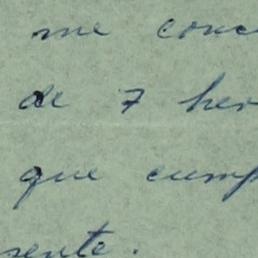 me conc
de 7 her
que cump
sente.